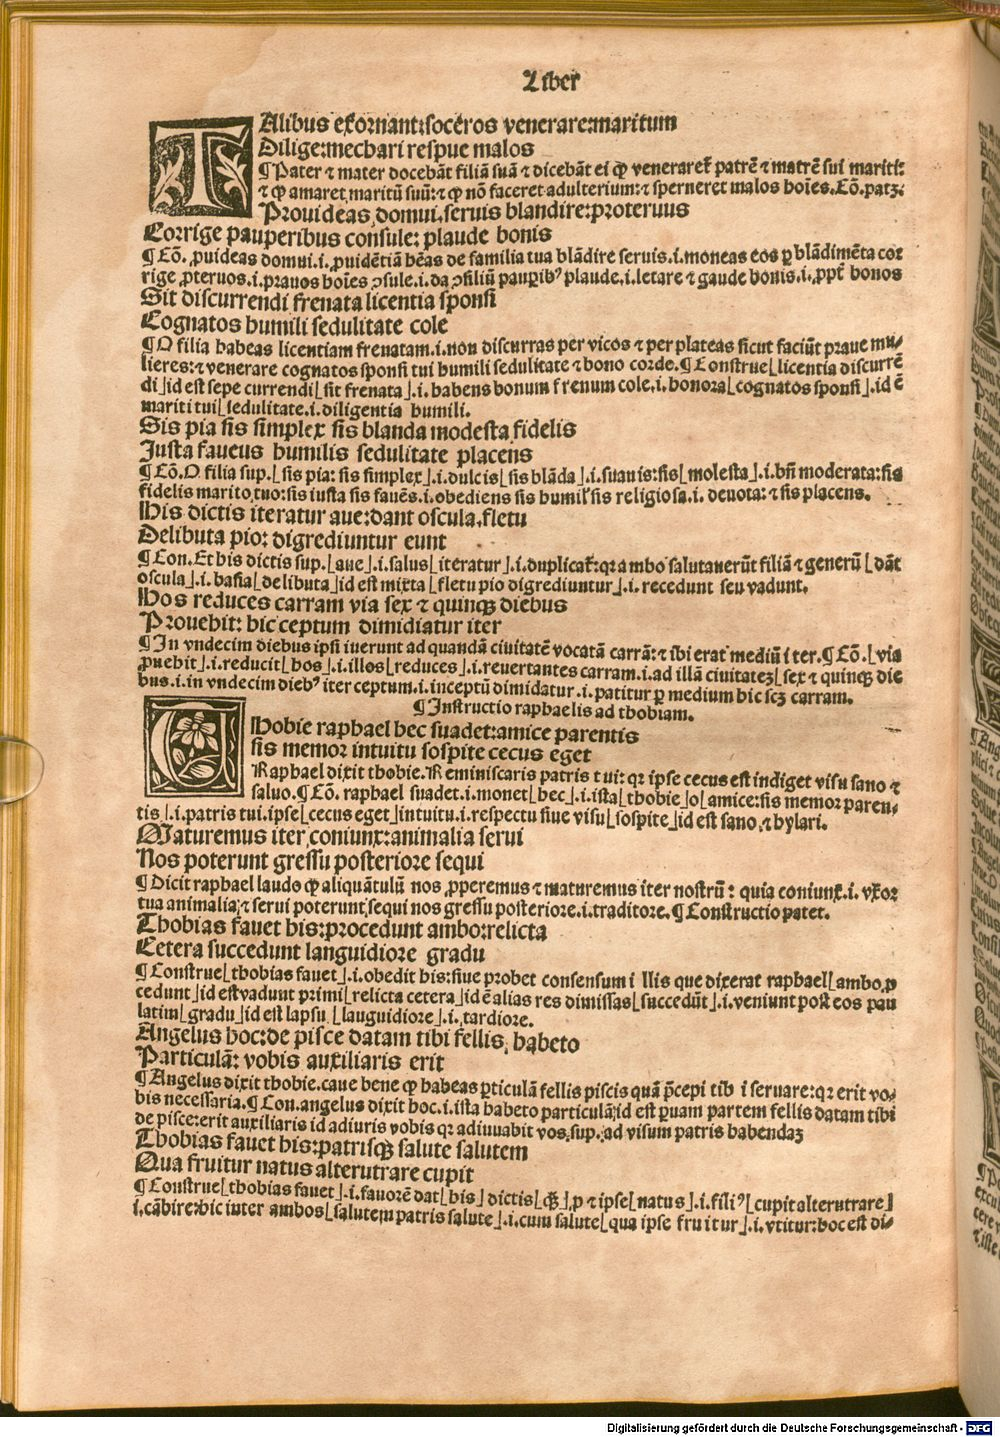 Liber
TAlibus exornant: soceros venerare: maritum
Dilige: mechari respue malos
¶ Pater ⁊ mater docebāt filiā suā ⁊ dicebāt ei ꝙ veneraret̄ patrē ⁊ matrē sui mariti:
⁊ ꝙ amaret maritū suū: ⁊ ꝙ nō faceret adulterium: ⁊ sperneret malos hoīes. Cō. patꝫ.
Prouideas domui, seruis blandire: proteruus
Corrige pauperibus consule: plaude bonis
¶ Cō. ꝓuideas domui .i. ꝓuidētiā hēas de familia tua blādire seruis .i. moneas eos ꝑ blādimēta cor
rige ꝓteruos .i. prauos hoīes ꝯsule .i. da ꝯsiliū pauꝑibꝰ plaude .i. letare ⁊ gaude bonis .i. ꝓpt̄ bonos
Sit discurrendi frenata licentia sponsi
Cognatos humili sedulitate cole
¶ O filia habeas licentiam frenatam .i. non discurras per vicos ⁊ per plateas sicut faciūt praue mu-
lieres: ⁊ venerare cognatos sponsi tui humili sedulitate ⁊ bono corde. ¶ Construe ⌊licentia discurrē
di⌋ id est sepe currendi ⌊sit frenata⌋ .i. habens bonum frenum cole .i. honora ⌊cognatos sponsi⌋ .id ē
mariti tui ⌊sedulitate .i. diligentia humili.
Sis pia sis simplex sis blanda modesta fidelis
Justa faueus humilis sedulitate placens
¶ Cō. O filia sup. ⌊sis pia: sis simplex⌋ .i. dulcis ⌊sis blāda⌋ .i. suauis: sis ⌊molesta⌋ .i. bn̄ moderata: sis
fidelis marito tuo: sis iusta sis fauēs .i. obediens sis humil' sis religiosa .i. deuota: ⁊ sis placens.
His dictis iteratur aue: dant oscula, fletu
Delibuta pio: digrediuntur eunt
¶ Con. Et his dictis sup. ⌊aue⌋ .i. salus ⌊iteratur⌋ .i. duplicat̄: qꝛ ambo salutauerūt filiā ⁊ generū ⌊dāt
oscula⌋ .i. basia ⌊delibuta⌋ id est mixta ⌊fletu pio digrediuntur⌋ .i. recedunt seu vadunt.
Hos reduces carram via sex ⁊ quinqꝫ diebus
Prouehit: hic ceptum dimidiatur iter
¶ In vndecim diebus ipsi iuerunt ad quandā ciuitatē vocatā carrā: ⁊ ibi erat mediū iter. ¶ Cō. ⌊via
ꝓuehit⌋ .i. reducit ⌊hos⌋ .i. illos ⌊reduces⌋ .i. reuertantes carram .i. ad illā ciuitateꝫ ⌊sex ⁊ quinqꝫ die
bus .i. in vndecim diebꝰ iter ceptum .i. inceptū dimidatur .i. patitur ꝑ medium hic scꝫ carram.
¶ Instructio raphaelis ad thobiam.
THobie raphael hec suadet: amice parentis
sis memor intuitu sospite cecus eget
Raphael dixit thobie. Reminiscaris patris tui: qꝛ ipse cecus est indiget visu sano ⁊
saluo. ¶ Cō. raphael suadet .i. monet ⌊hec⌋ .i. ista ⌊thobie⌋ o ⌊amice: sis memor paren-
tis⌋ .i. patris tui .ipse ⌊cecus eget⌋ intuitu .i. respectu siue visu ⌊sospite⌋ id est sano, ⁊ hylari.
Maturemus iter, coniunx: animalia serui
Nos poterunt gressu posteriore sequi
¶ Dicit raphael laudo ꝙ aliquātulū nos ꝓperemus ⁊ maturemus iter nostrū: quia coniunx .i. vxor
tua animalia, ⁊ serui poterunt sequi nos gressu posteriore .i. traditore. ¶ Constructio patet.
Thobias fauet his: procedunt ambo: relicta
Cetera succedunt languidiore gradu
¶ Construe ⌊thobias fauet⌋ .i. obedit his: siue probet consensum illis que dixerat raphael ⌊ambo ꝓ
cedunt⌋ id est vadunt primi ⌊relicta cetera⌋ id ē alias res dimissas ⌊succedūt⌋ .i. veniunt post eos pau
latim ⌊gradu⌋ id est lapsu ⌊lauguidiore⌋ .i. tardiore.
Angelus hoc: de pisce datam tibi fellis, habeto
Particulā: vobis auxiliaris erit
¶ Angelus dixit thobie. caue bene ꝙ habeas ꝑticulā fellis piscis quā p̄cepi tibi seruare: qꝛ erit vo-
bis necessaria. ¶ Con. angelus dixit hoc .i. ista habeto particulā: id est ꝑuam partem fellis datam tibi
de pisce: erit auxiliaris id adiuris vobis qꝛ adiuuabit vos, sup. ad visum patris habendaꝫ
Thobias fauet his: patrisqꝫ salute salutem
Qua fruitur natus alterutrare cupit
¶ Construe ⌊thobias fauet⌋ .i. fauorē dat ⌊his⌋ dictis ⌊qꝫ⌋ ꝓ ⁊ ipse ⌊natus⌋ .i. filiꝰ ⌊cupit alterutrare⌋
.i. cābire: hic inter ambos ⌊salutem patris salute⌋ .i. cum salute ⌊qua ipse fruitur⌋ .i. vtitur: hoc est di-
Digitalisierung gefördert durch die Deutsche Forschungsgemeinschaft - DFG